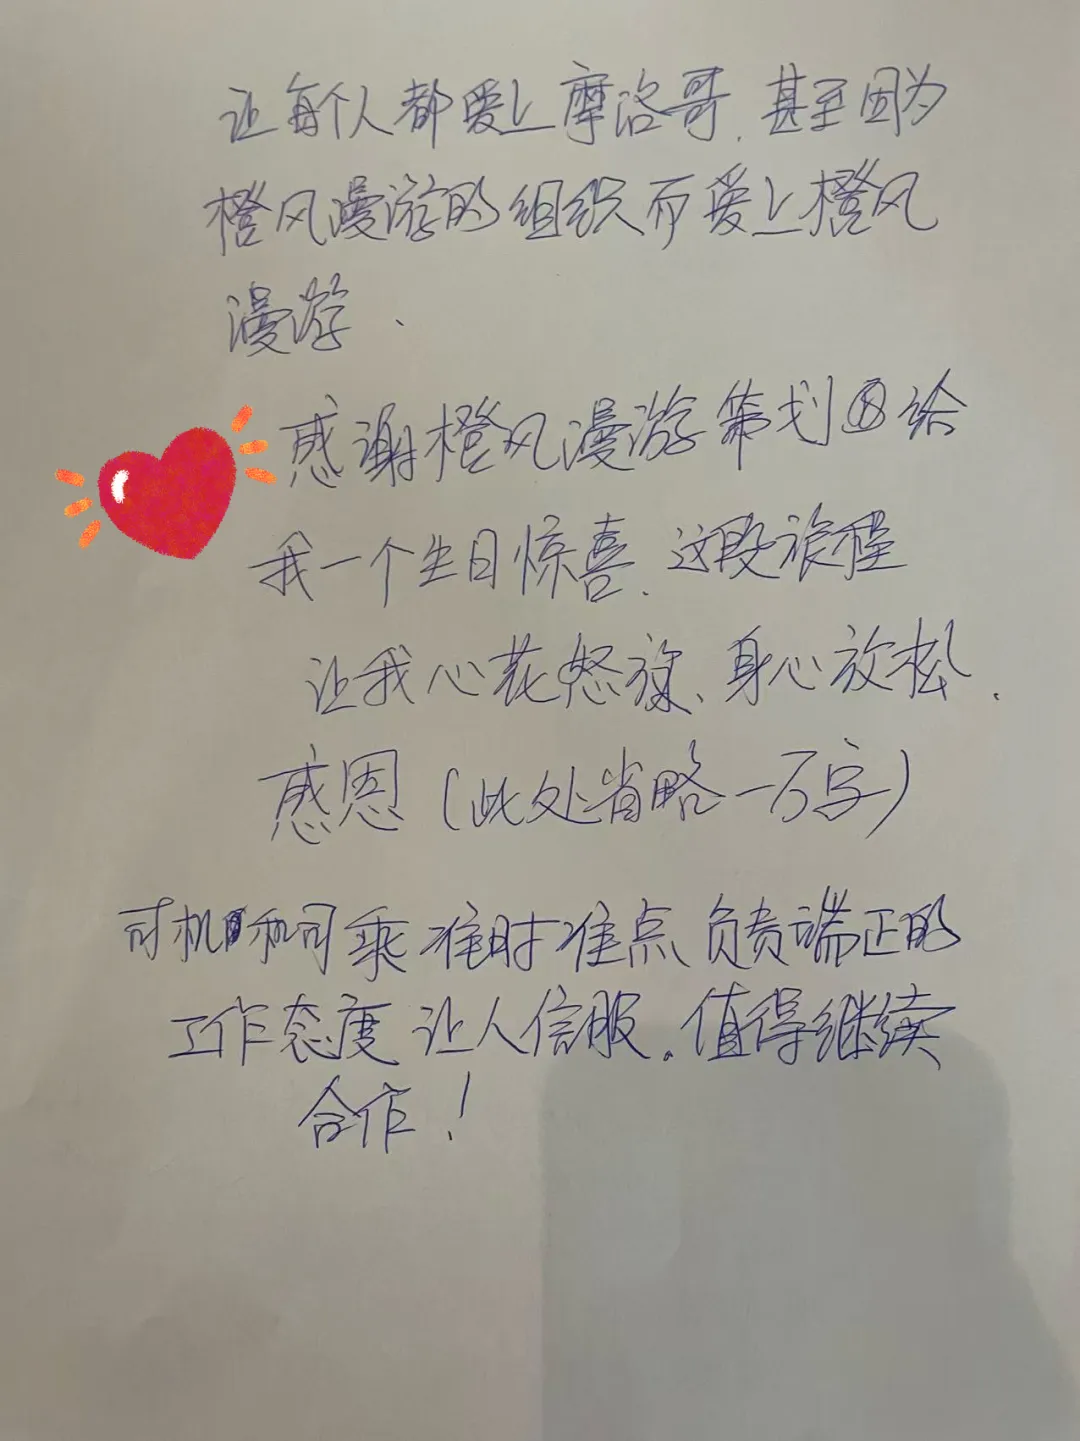 让每个人都爱上摩洛哥，甚至因为
橙风漫游的组织而爱上橙风
漫游．
感谢橙风漫游策划团给
我一个生日惊喜．这段旅程
让我心花怒放、身心放松．
感恩（此处省略一万字）
司机和司乘准时准点负责端正的
工作态度让人信服。值得继续
合作！